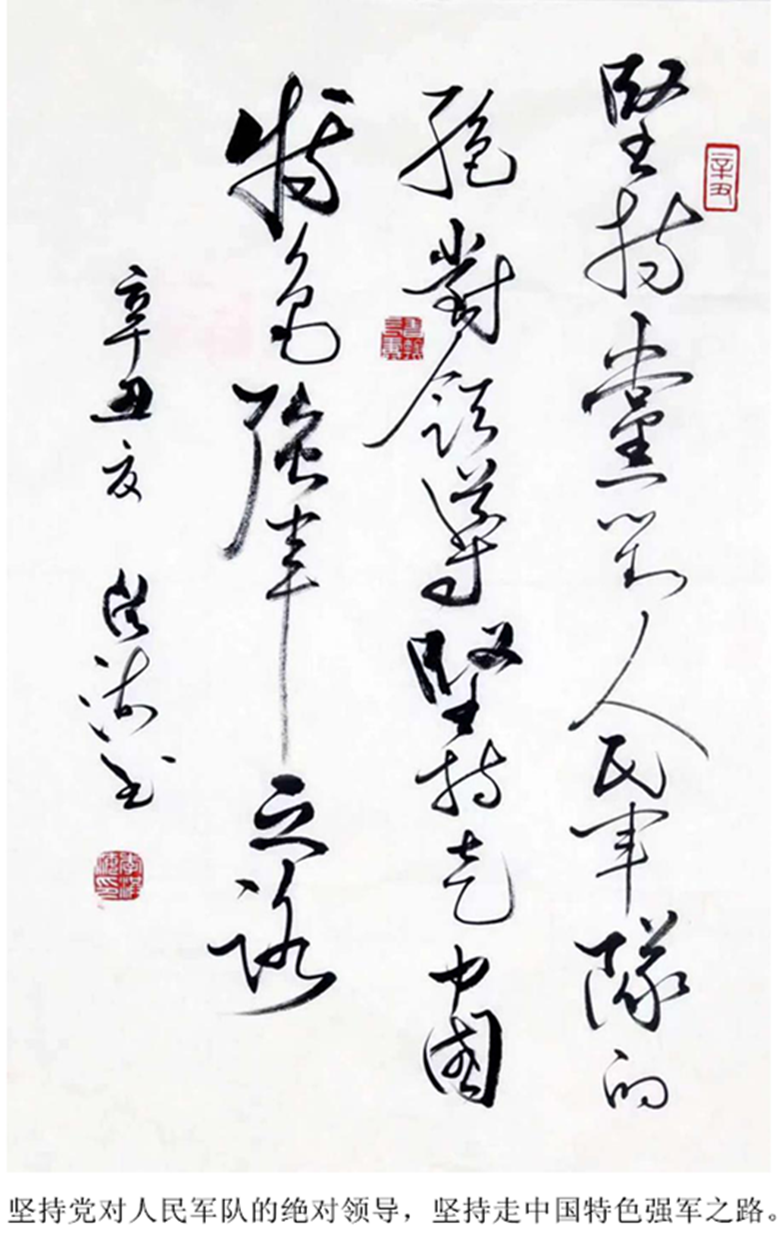 堅持黨對人民軍隊的
絕對領導堅持走中國
特色強軍之路
辛丑夏 洪波书
辛丑
坚持党对人民军队的绝对领导，坚持走中国特色强军之路。